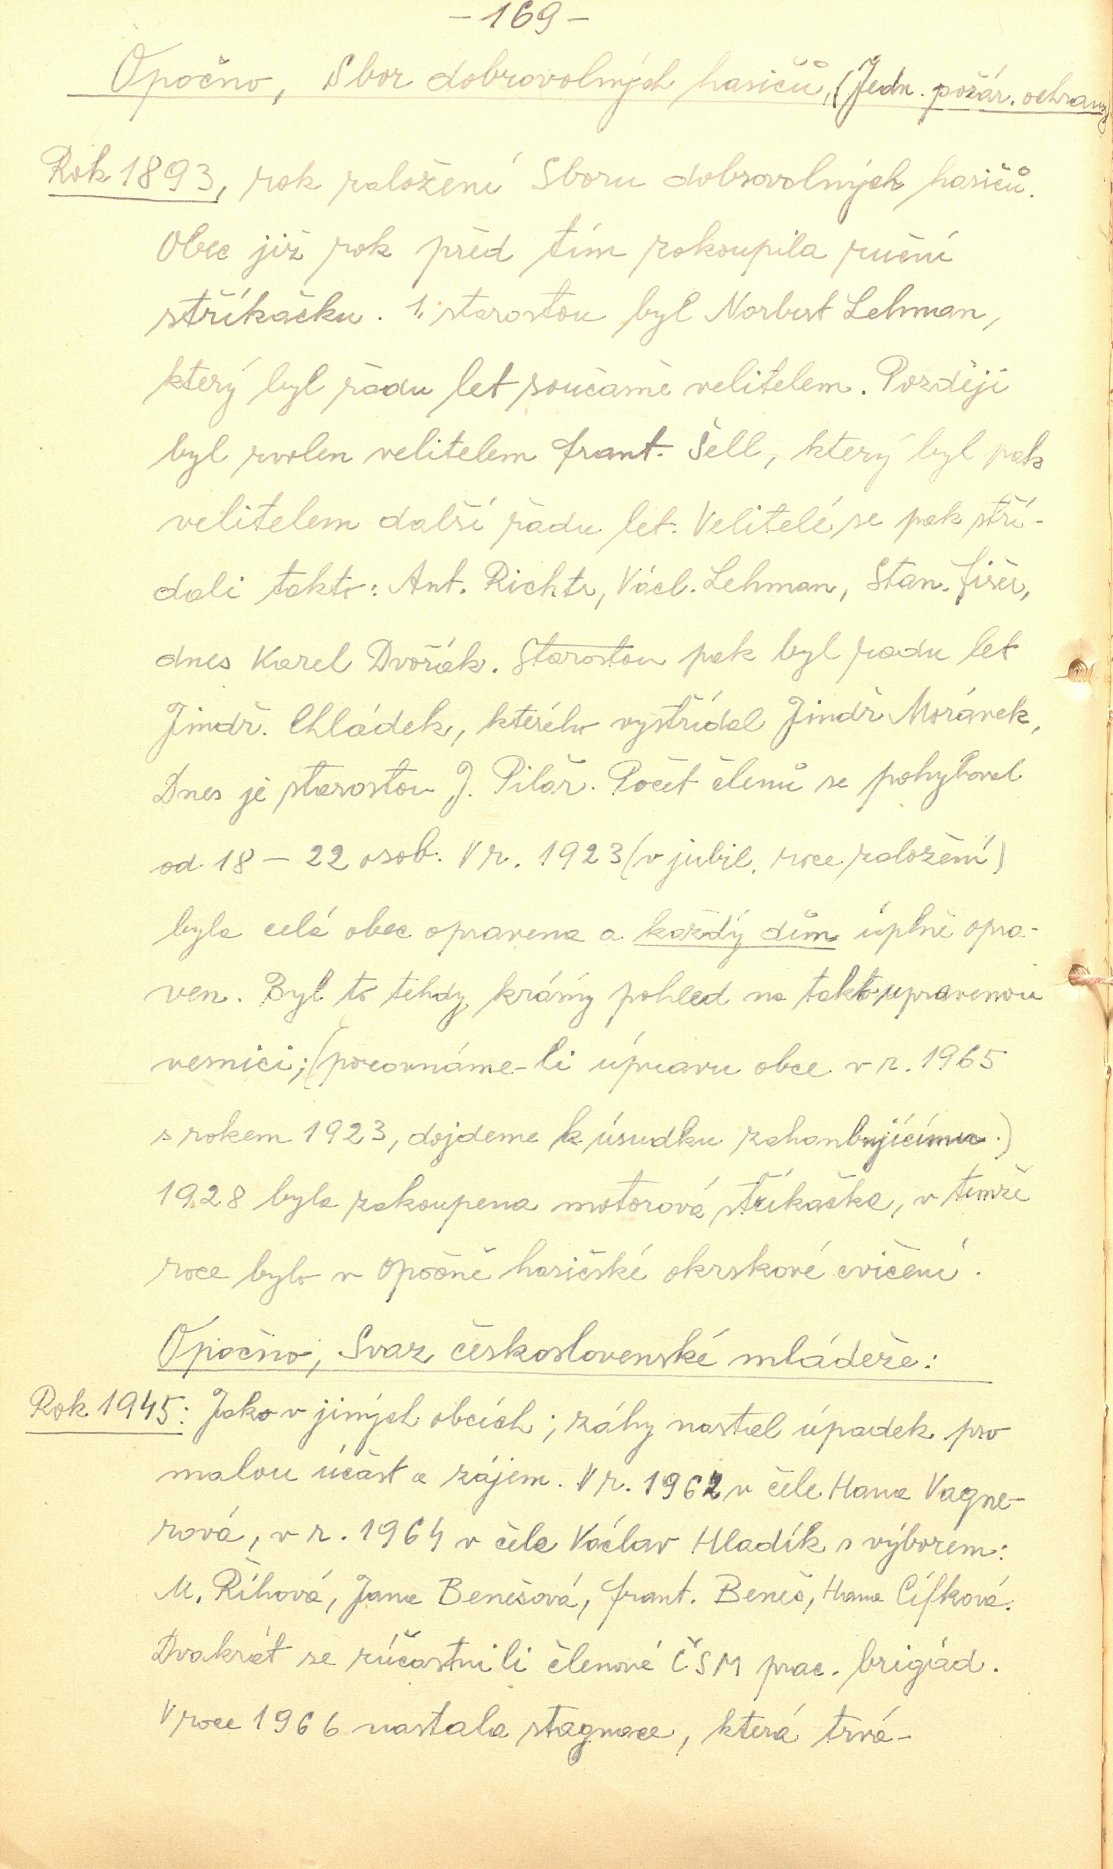 - 169 -
Opočno, Sbor dobrovolných hasičů, (Jedn. požár. ochrany)
Rok 1893, rok založení Sboru dobrovolných hasičů.
Obec již rok před tím zakoupila ruční
stříkačku. 1. starostou byl Norbert Lehman,
který byl řadu let současně velitelem. Později
byl zvolen velitelem Frant. Šell, který byl pak
velitelem další řadu let. Velitelé se pak stří-
dali takto: Ant. Richtr, Václ. Lehman, Stan. Fišer,
dnes Karel Dvořák. Starostou pak byl řadu let
Jindř. Chládek, kterého vystřídal Jindř. Morávek,
Dnes je starostou J. Pilař. Počet členů se pohyboval
od 18 - 22 osob. V r. 1923 (v jubil. roce založení)
byla celá obec opravena a každý dům úplně opra-
ven. Byl to tehdy krásný pohled na takto upravenou
vesnici; (porovnáme-li úpravu obce v r. 1965
s rokem 1923, dojdeme k úsudku zahanbujícímu.)
1928 byla zakoupena motorová stříkačka, v témže
roce bylo v Opočně hasičské okrskové cvičení.
Opočno, Svaz československé mládeže:
Rok 1945: Jako v jiných obcích; záhy nastal úpadek pro
malou účast a zájem. V r. 1962 v čele Hana Vagne-
rová, v r. 1964 v čele Václav Hladík s výborem:
M. Říhová, Jana Benešová, Frant. Beneš, Hana Cífková.
Dvakrát se zúčastnili členové ČSM prac. brigád.
V roce 1966 nastala stagnace, která trvá-